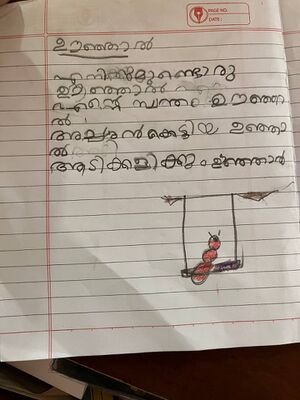 PAGE NO.
DATE:
ഊഞ്ഞാൽ
എനിക്കുമുണ്ടൊരു
ഊഞ്ഞാൽ
എന്റെ സ്വന്തം ഊഞ്ഞാ
ൽ
അച്ഛൻകെട്ടിയ ഊഞ്ഞാ
ൽ
ആടിക്കളിക്കും ഊഞ്ഞാൽ